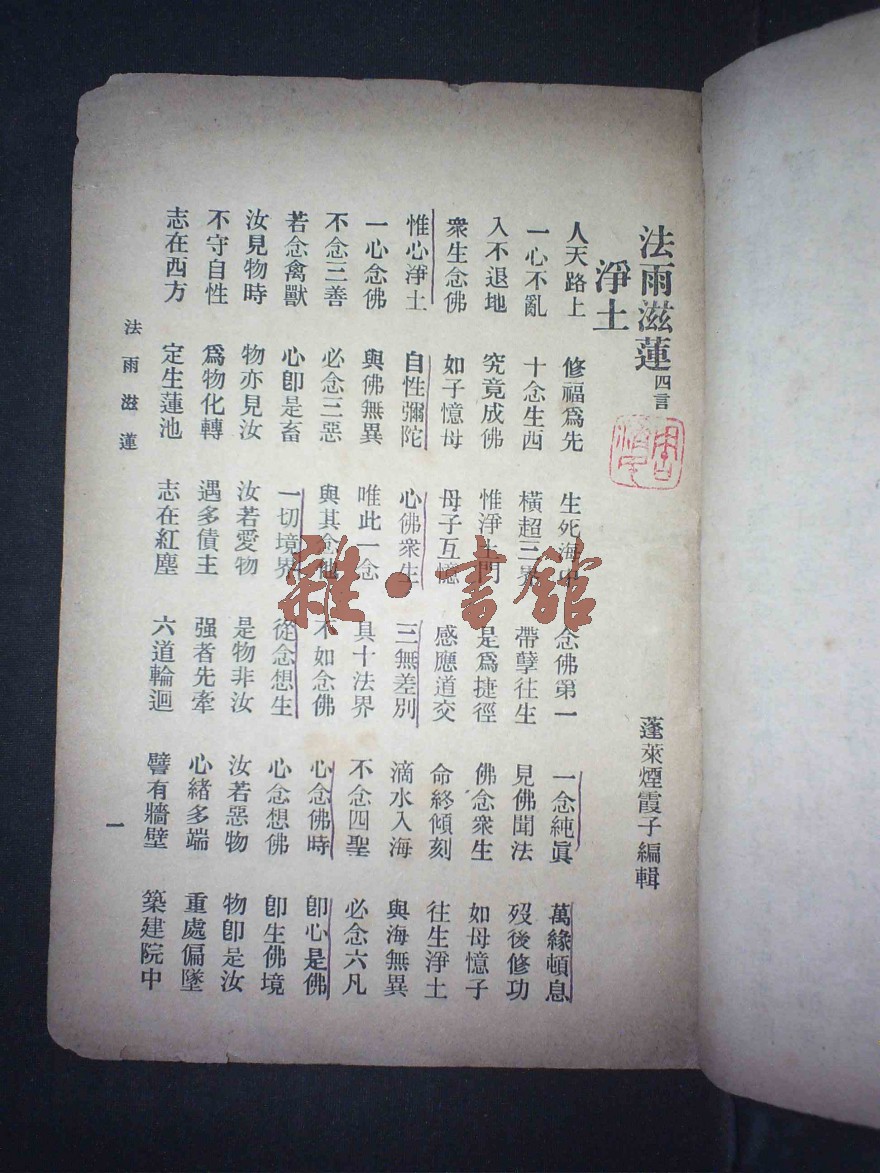 法雨滋蓮 四言
蓬萊煙霞子編輯
淨土
人天路上 修福爲先 生死海中 念佛第一 一念純眞 萬緣頓息
一心不亂 十念生西 橫超三界 帶孽往生 見佛聞法 歿後修功
入不退地 究竟成佛 惟淨土門 是爲捷徑 佛念衆生 如母憶子
衆生念佛 如子憶母 母子互憶 感應道交 命終傾刻 往生淨土
惟心淨土 自性彌陀 心佛衆生 三無差別 滴水入海 與海無異
一心念佛 與佛無異 唯此一念 具十法界 不念四聖 必念六凡
不念三善 必念三惡 與其念他 不如念佛 心念佛時 卽心是佛
若念禽獸 心卽是畜 一切境界 從念想生 心念想佛 卽生佛境
汝見物時 物亦見汝 汝若愛物 是物非汝 汝若惡物 物卽是汝
不守自性 爲物化轉 遇多債主 强者先牽 心緒多端 重處偏墜
志在西方 定生蓮池 志在紅塵 六道輪迴 譬有牆壁 築建院中
法雨滋蓮
一
雜·書館